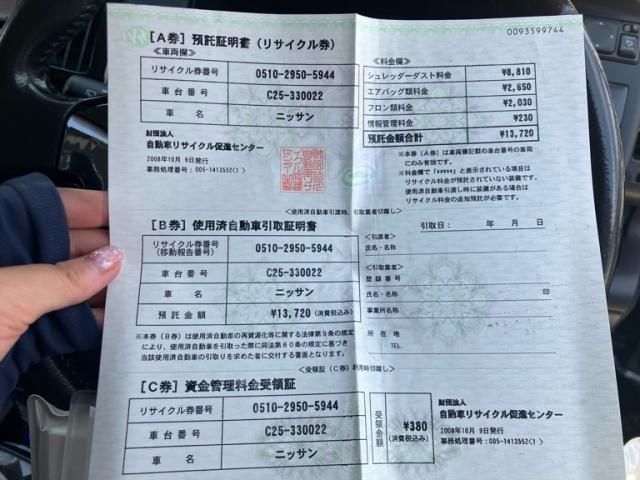 0093599744
[A券] 預託証明書 (リサイクル券)
<車両欄>
リサイクル券番号 0510-2950-5944
車台番号 C25-330022
車名 ニッサン
財団法人
自動車リサイクル促進センター
2008年10月 9日発行
事務処理番号:005-1413552(1 )
<料金欄>
シュレッダーダスト料金 ¥8,810
エアバッグ類料金 ¥2,650
フロン類料金 ¥2,030
情報管理料金 ¥230
預託金額合計 ¥13,720
※本券(A券)は車両欄記載の車台番号の車両
にのみ有効です。
※料金欄で「*****」と表示されている項目は
リサイクル料金が預託されていない装備です。
使用済自動車引渡し時に装備がある場合は
リサイクル料金の追加預託が必要です。
<使用済自動車引渡時、引取業者切離し>
[B券] 使用済自動車引取証明書
リサイクル券番号
(移動報告番号) 0510-2950-5944
車台番号 C25-330022
車名 ニッサン
預託金額 ¥13,720 (消費税込み)
※本券(B券)は使用済自動車の再資源化等に関する法律第9条の規定
により、使用済自動車を引取った際に同法第80条の規定に基づき
当該使用済自動車の引取りを求めた者に交付する書面となります。
引取日: 年 月 日
<引渡者>
氏名・名称
<引取業者>
登録番号
氏名・名称 印
事業所名称
所在地
TEL.
<受領証(C券)利用時切離し>
[C券] 資金管理料金受領証
リサイクル券番号 0510-2950-5944
車台番号 C25-330022
車名 ニッサン
受領金額 ¥380
(消費税込み)
財団法人
自動車リサイクル促進センター
2008年10月 9日発行
事務処理番号:005-1413552(1 )